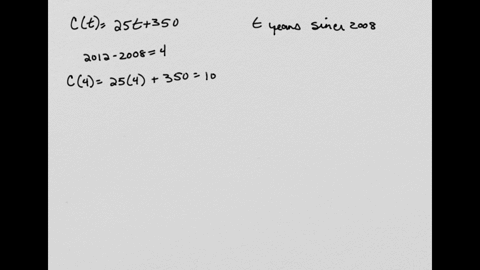 C(t) = 25t+350
t years since 2008
2012-2008 = 4
C(4) = 25(4) + 350 = 10